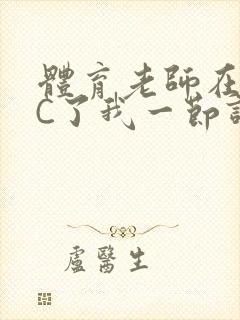 體育老師在
C了我一節
盧醫生